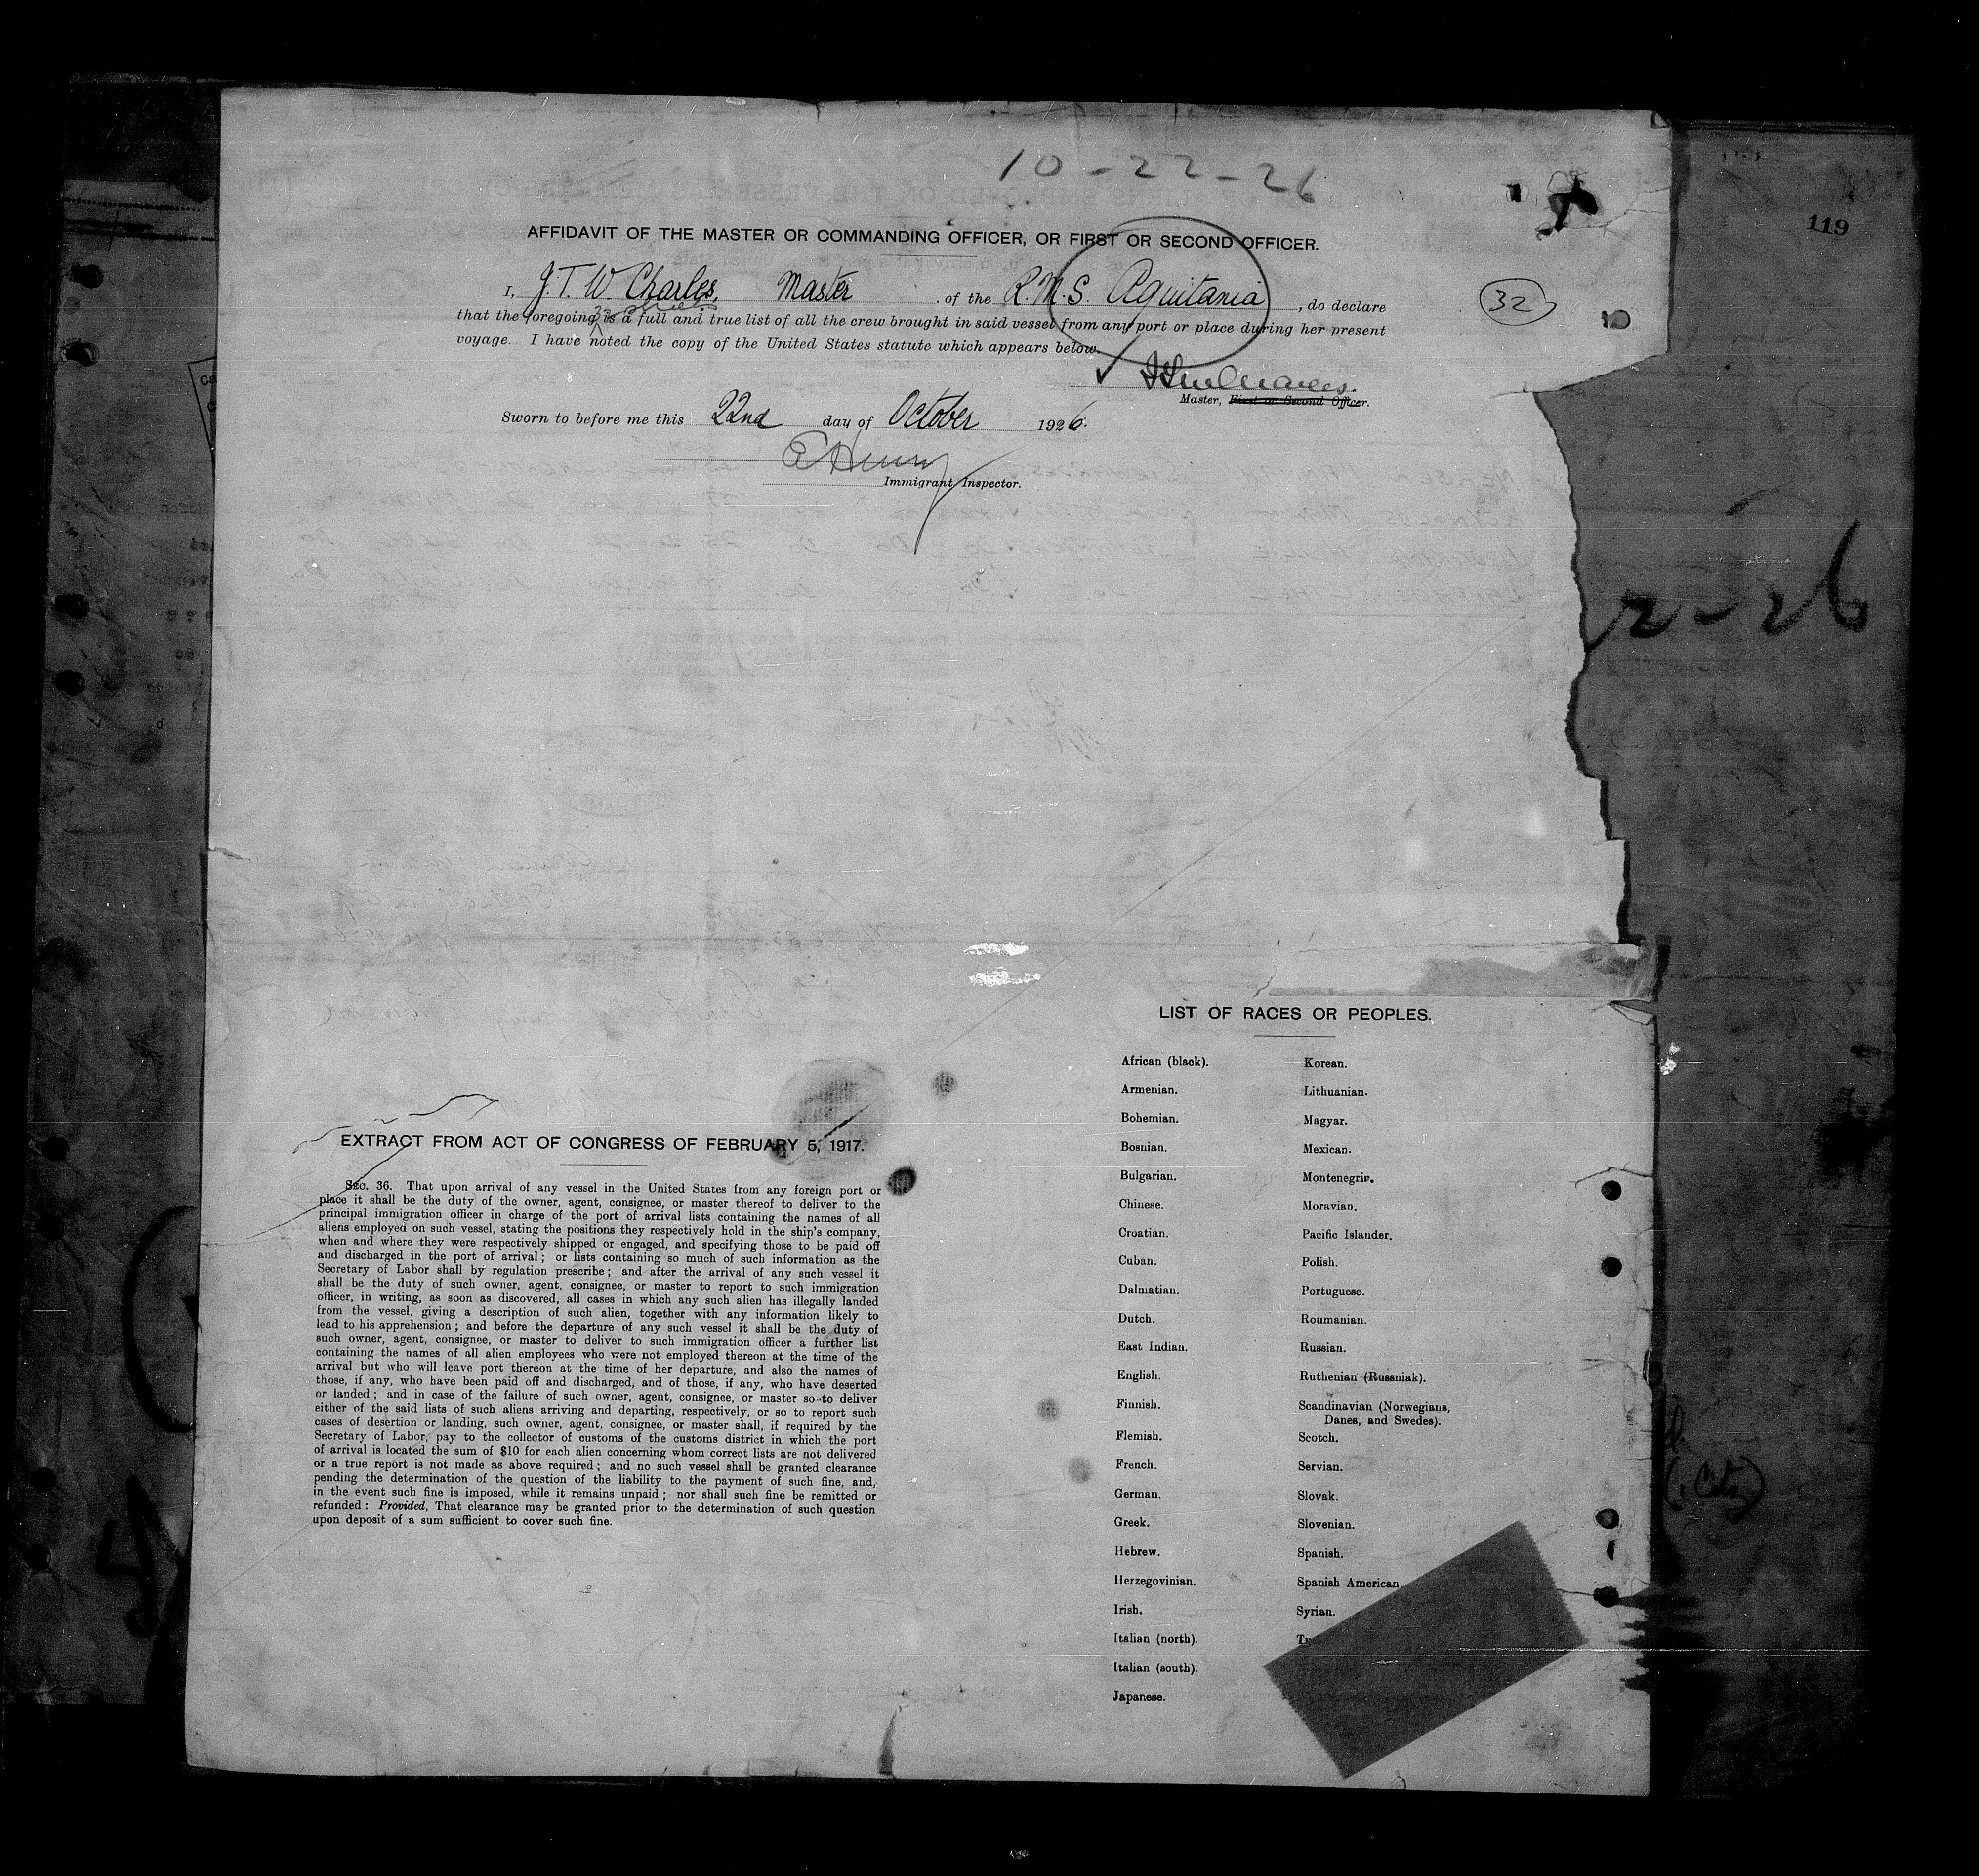 10-22-26
119
AFFIDAVIT OF THE MASTER OR COMMANDING OFFICER, OR FIRST OR SECOND OFFICER.
I, J. T. W. Charles, Master of the R.M.S. Aquitania, do declare
32
that the foregoing is a full and true list of all the crew brought in said vessel from any port or place during her present
voyage. I have noted the copy of the United States statute which appears below.
Master, First or Second Officer.
Sworn to before me this 22nd day of October 1926.
Immigrant Inspector.
2-26
LIST OF RACES OR PEOPLES.
African (black).
Armenian.
Bohemian.
Bosnian.
Bulgarian.
Chinese.
Croatian.
Cuban.
Dalmatian.
Dutch.
East Indian.
English.
Finnish.
Flemish.
French.
German.
Greek.
Hebrew.
Herzegovinian.
Irish.
Italian (north).
Italian (south).
Japanese.
Korean.
Lithuanian.
Magyar.
Mexican.
Montenegrin.
Moravian.
Pacific Islander.
Polish.
Portuguese.
Roumanian.
Russian.
Ruthenian (Russniak).
Scandinavian (Norwegians,
Danes, and Swedes).
Scotch.
Servian.
Slovak.
Slovenian.
Spanish.
Spanish American.
Syrian.
EXTRACT FROM ACT OF CONGRESS OF FEBRUARY 5, 1917.
SEC. 36. That upon arrival of any vessel in the United States from any foreign port or
place it shall be the duty of the owner, agent, consignee, or master thereof to deliver to the
principal immigration officer in charge of the port of arrival lists containing the names of all
aliens employed on such vessel, stating the positions they respectively hold in the ship's company,
when and where they were respectively shipped or engaged, and specifying those to be paid off
and discharged in the port of arrival; or lists containing so much of such information as the
Secretary of Labor shall by regulation prescribe; and after the arrival of any such vessel it
shall be the duty of such owner, agent, consignee, or master to report to such immigration
officer, in writing, as soon as discovered, all cases in which any such alien has illegally landed
from the vessel, giving a description of such alien, together with any information likely to
lead to his apprehension; and before the departure of any such vessel it shall be the duty of
such owner, agent, consignee, or master to deliver to such immigration officer a further list
containing the names of all alien employees who were not employed thereon at the time of the
arrival but who will leave port thereon at the time of her departure, and also the names of
those, if any, who have been paid off and discharged, and of those, if any, who have deserted
or landed; and in case of the failure of such owner, agent, consignee, or master so to deliver
either of the said lists of such aliens arriving and departing, respectively, or so to report such
cases of desertion or landing, such owner, agent, consignee, or master shall, if required by the
Secretary of Labor, pay to the collector of customs of the customs district in which the port
of arrival is located the sum of $10 for each alien concerning whom correct lists are not delivered
or a true report is not made as above required; and no such vessel shall be granted clearance
pending the determination of the question of the liability to the payment of such fine, and,
in the event such fine is imposed, while it remains unpaid; nor shall such fine be remitted or
refunded: Provided, That clearance may be granted prior to the determination of such question
upon deposit of a sum sufficient to cover such fine.